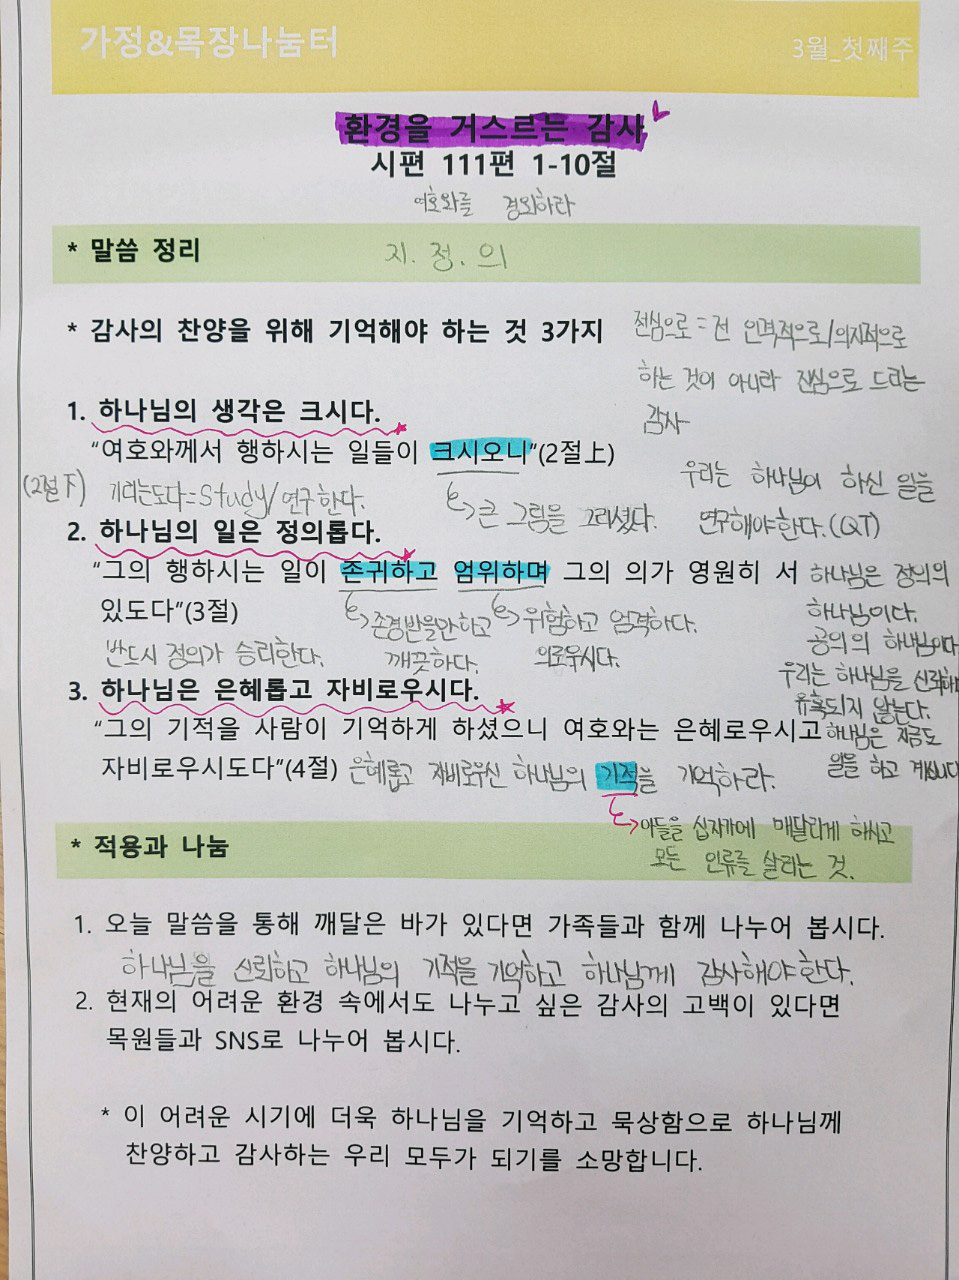 가정&목장나눔터
3월_첫째주
환경을 거스르는 감사
시편 111편 1-10절
여호와를 경외하라
* 말씀 정리
지. 정. 의
* 감사의 찬양을 위해 기억해야 하는 것 3가지
전심으로 = 전 인격적으로/의지적으로
하는 것이 아니라 진심으로 드리는
감사
1. 하나님의 생각은 크시다.
“여호와께서 행하시는 일들이 크시오니”(2절上)
(2절下) 기리는도다=Study/연구한다.
큰 그림을 그리셨다.
우리는 하나님이 하신 일을
연구해야한다.(QT)
2. 하나님의 일은 정의롭다.
“그의 행하시는 일이 존귀하고 엄위하며 그의 의가 영원히 서
있도다”(3절)
존경받을만하고
깨끗하다.
위험하고 엄격하다.
의로우시다.
반드시 정의가 승리한다.
하나님은 정의의
하나님이다.
공의의 하나님이다
우리는 하나님을 신뢰하며
유혹되지 않는다.
하나님은 지금도
일을 하고 계십니다
3. 하나님은 은혜롭고 자비로우시다.
“그의 기적을 사람이 기억하게 하셨으니 여호와는 은혜로우시고
자비로우시도다”(4절)
은혜롭고 자비로우신 하나님의 기적을 기억하라.
아들을 십자가에 매달리게 하시고
모든 인류를 살리는 것.
* 적용과 나눔
1. 오늘 말씀을 통해 깨달은 바가 있다면 가족들과 함께 나누어 봅시다.
하나님을 신뢰하고 하나님의 기적을 기억하고 하나님께 감사해야한다.
2. 현재의 어려운 환경 속에서도 나누고 싶은 감사의 고백이 있다면
목원들과 SNS로 나누어 봅시다.
* 이 어려운 시기에 더욱 하나님을 기억하고 묵상함으로 하나님께
찬양하고 감사하는 우리 모두가 되기를 소망합니다.